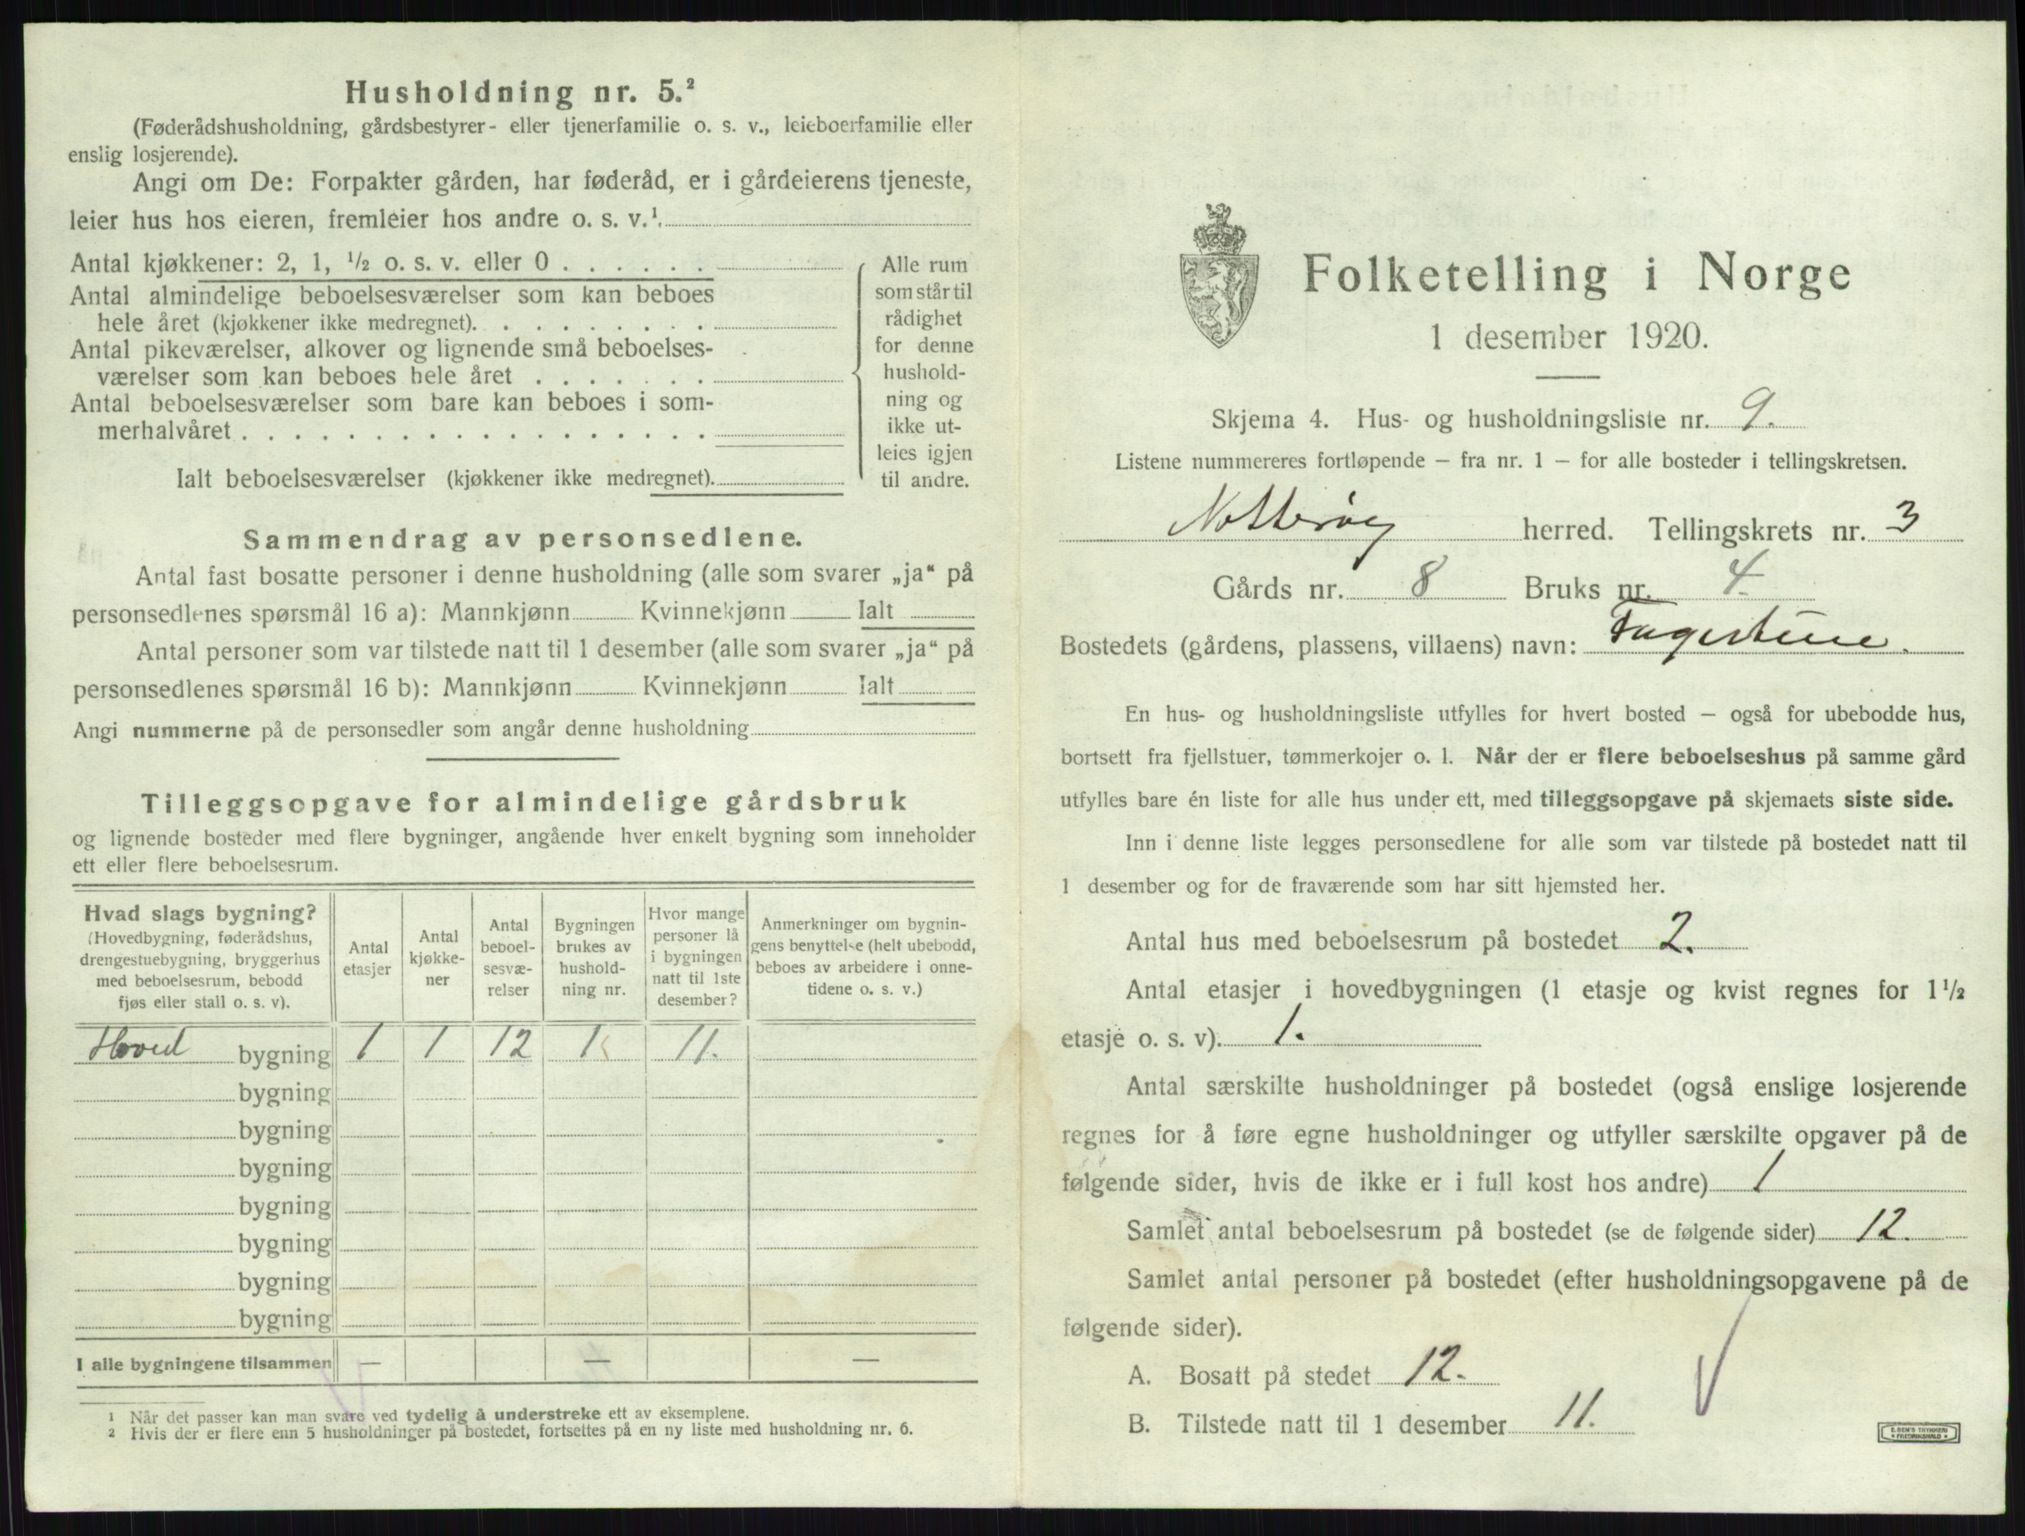 Husholdning nr. 5.²
(Føderådshusholdning, gårdsbestyrer- eller tjenerfamilie o. s. v., leieboerfamilie eller
enslig losjerende).
Angi om De: Forpakter gården, har føderåd, er i gårdeierens tjeneste,
leier hus hos eieren, fremleier hos andre o. s. v.¹.
Antal kjøkkener: 2, 1, ½ o. s. v. eller 0
Antal almindelige beboelsesværelser som kan beboes
hele året (kjøkkener ikke medregnet).
Antal pikeværelser, alkover og lignende små beboelses-
værelser som kan beboes hele året
Antal beboelsesværelser som bare kan beboes i som-
merhalvåret
Ialt beboelsesværelser (kjøkkener ikke medregnet).
Alle rum
som står til
rådighet
for denne
hushold-
ning og
ikke ut-
leies igjen
til andre.
Sammendrag av personsedlene.
Antal fast bosatte personer i denne husholdning (alle som svarer „ja“ på
personsedlenes spørsmål 16 a): Mannkjønn Kvinnekjønn Ialt
Antal personer som var tilstede natt til 1 desember (alle som svarer „ja“ på
personsedlenes spørsmål 16 b): Mannkjønn Kvinnekjønn Ialt
Angi nummerne på de personsedler som angår denne husholdning
Tilleggsopgave for almindelige gårdsbruk
og lignende bosteder med flere bygninger, angående hver enkelt bygning som inneholder
ett eller flere beboelsesrum.
Hvad slags bygning?
(Hovedbygning, føderådshus,
drengestuebygning, bryggerhus
med beboelsesrum, bebodd
fjøs eller stall o. s. v).
Antal
etasjer
Antal
kjøkke-
ner
Antal
beboel-
sesvæ-
relser
Bygningen
brukes av
hushold-
ning nr.
Hvor mange
personer lå
i bygningen
natt til 1ste
desember?
Anmerkninger om bygnin-
gens benyttelse (helt ubebodd,
beboes av arbeidere i onne-
tidene o. s. v.)
Hoved bygning 1 1 12 1 11.
bygning
bygning
bygning
bygning
bygning
bygning
bygning
I alle bygningene tilsammen — — —
1 Når det passer kan man svare ved tydelig å understreke ett av eksemplene.
2 Hvis der er flere enn 5 husholdninger på bostedet, fortsettes på en ny liste med husholdning nr. 6.
Folketelling i Norge
1 desember 1920.
Skjema 4. Hus- og husholdningsliste nr. 9.
Listene nummereres fortløpende – fra nr. 1 – for alle bosteder i tellingskretsen.
Nøtterøy herred. Tellingskrets nr. 3
Gårds nr. 8 Bruks nr. 4.
Bostedets (gårdens, plassens, villaens) navn:
En hus- og husholdningsliste utfylles for hvert bosted – også for ubebodde hus,
bortsett fra fjellstuer, tømmerkojer o. l. Når der er flere beboelseshus på samme gård
utfylles bare én liste for alle hus under ett, med tilleggsopgave på skjemaets siste side.
Inn i denne liste legges personsedlene for alle som var tilstede på bostedet natt til
1 desember og for de fraværende som har sitt hjemsted her.
Antal hus med beboelsesrum på bostedet 2.
Antal etasjer i hovedbygningen (1 etasje og kvist regnes for 1½
etasje o. s. v). 1.
Antal særskilte husholdninger på bostedet (også enslige losjerende
regnes for å føre egne husholdninger og utfyller særskilte opgaver på de
følgende sider, hvis de ikke er i full kost hos andre) 1
Samlet antal beboelsesrum på bostedet (se de følgende sider) 12.
Samlet antal personer på bostedet (efter husholdningsopgavene på de
følgende sider).
A. Bosatt på stedet 12.
B. Tilstede natt til 1 desember 11.